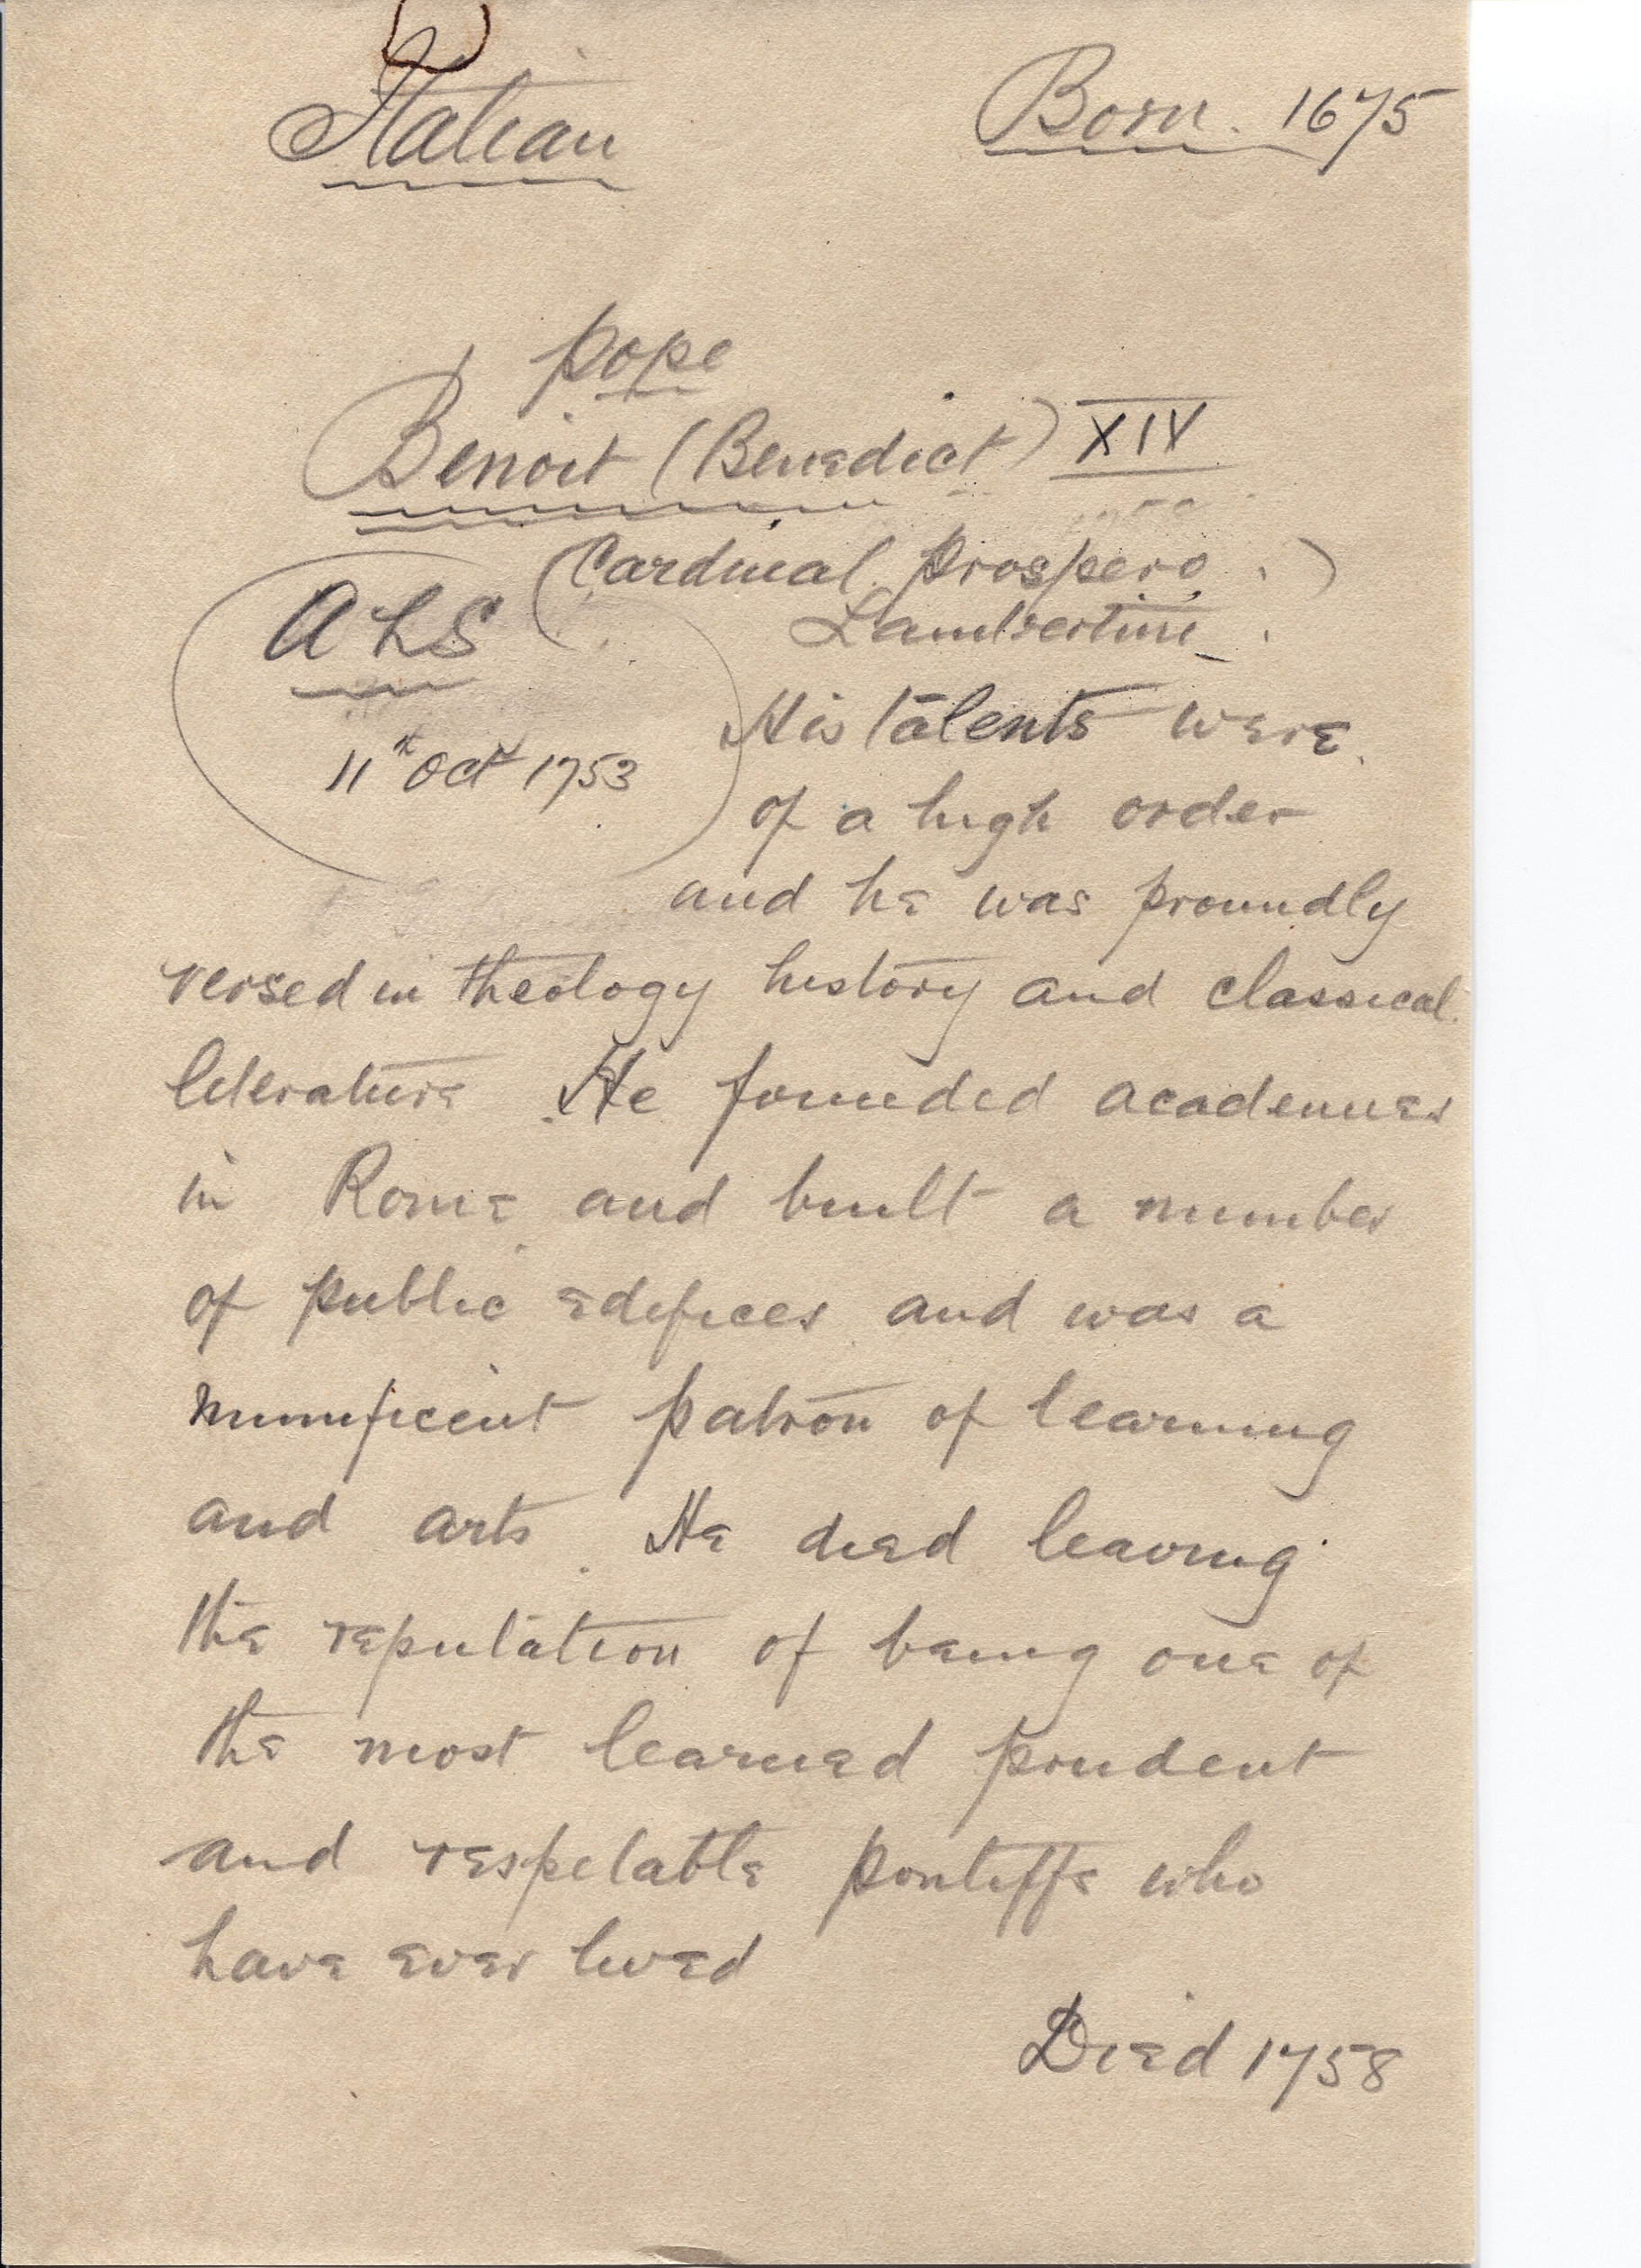 Italian
Born. 1675
Pope
Benoit (Benedict) XIV
(Cardinal Prospero
Lambertini)
ALS
11th Oct 1753
His talents were
of a high order
and he was proundly
versed in theology history and classical
literature He founded academies
in Rome and built a number
of public edifices and was a
munificent patron of learning
and arts. He died leaving
the reputation of being one of
the most learned prudent
and respelable pontiffs who
have ever lived
Died 1758